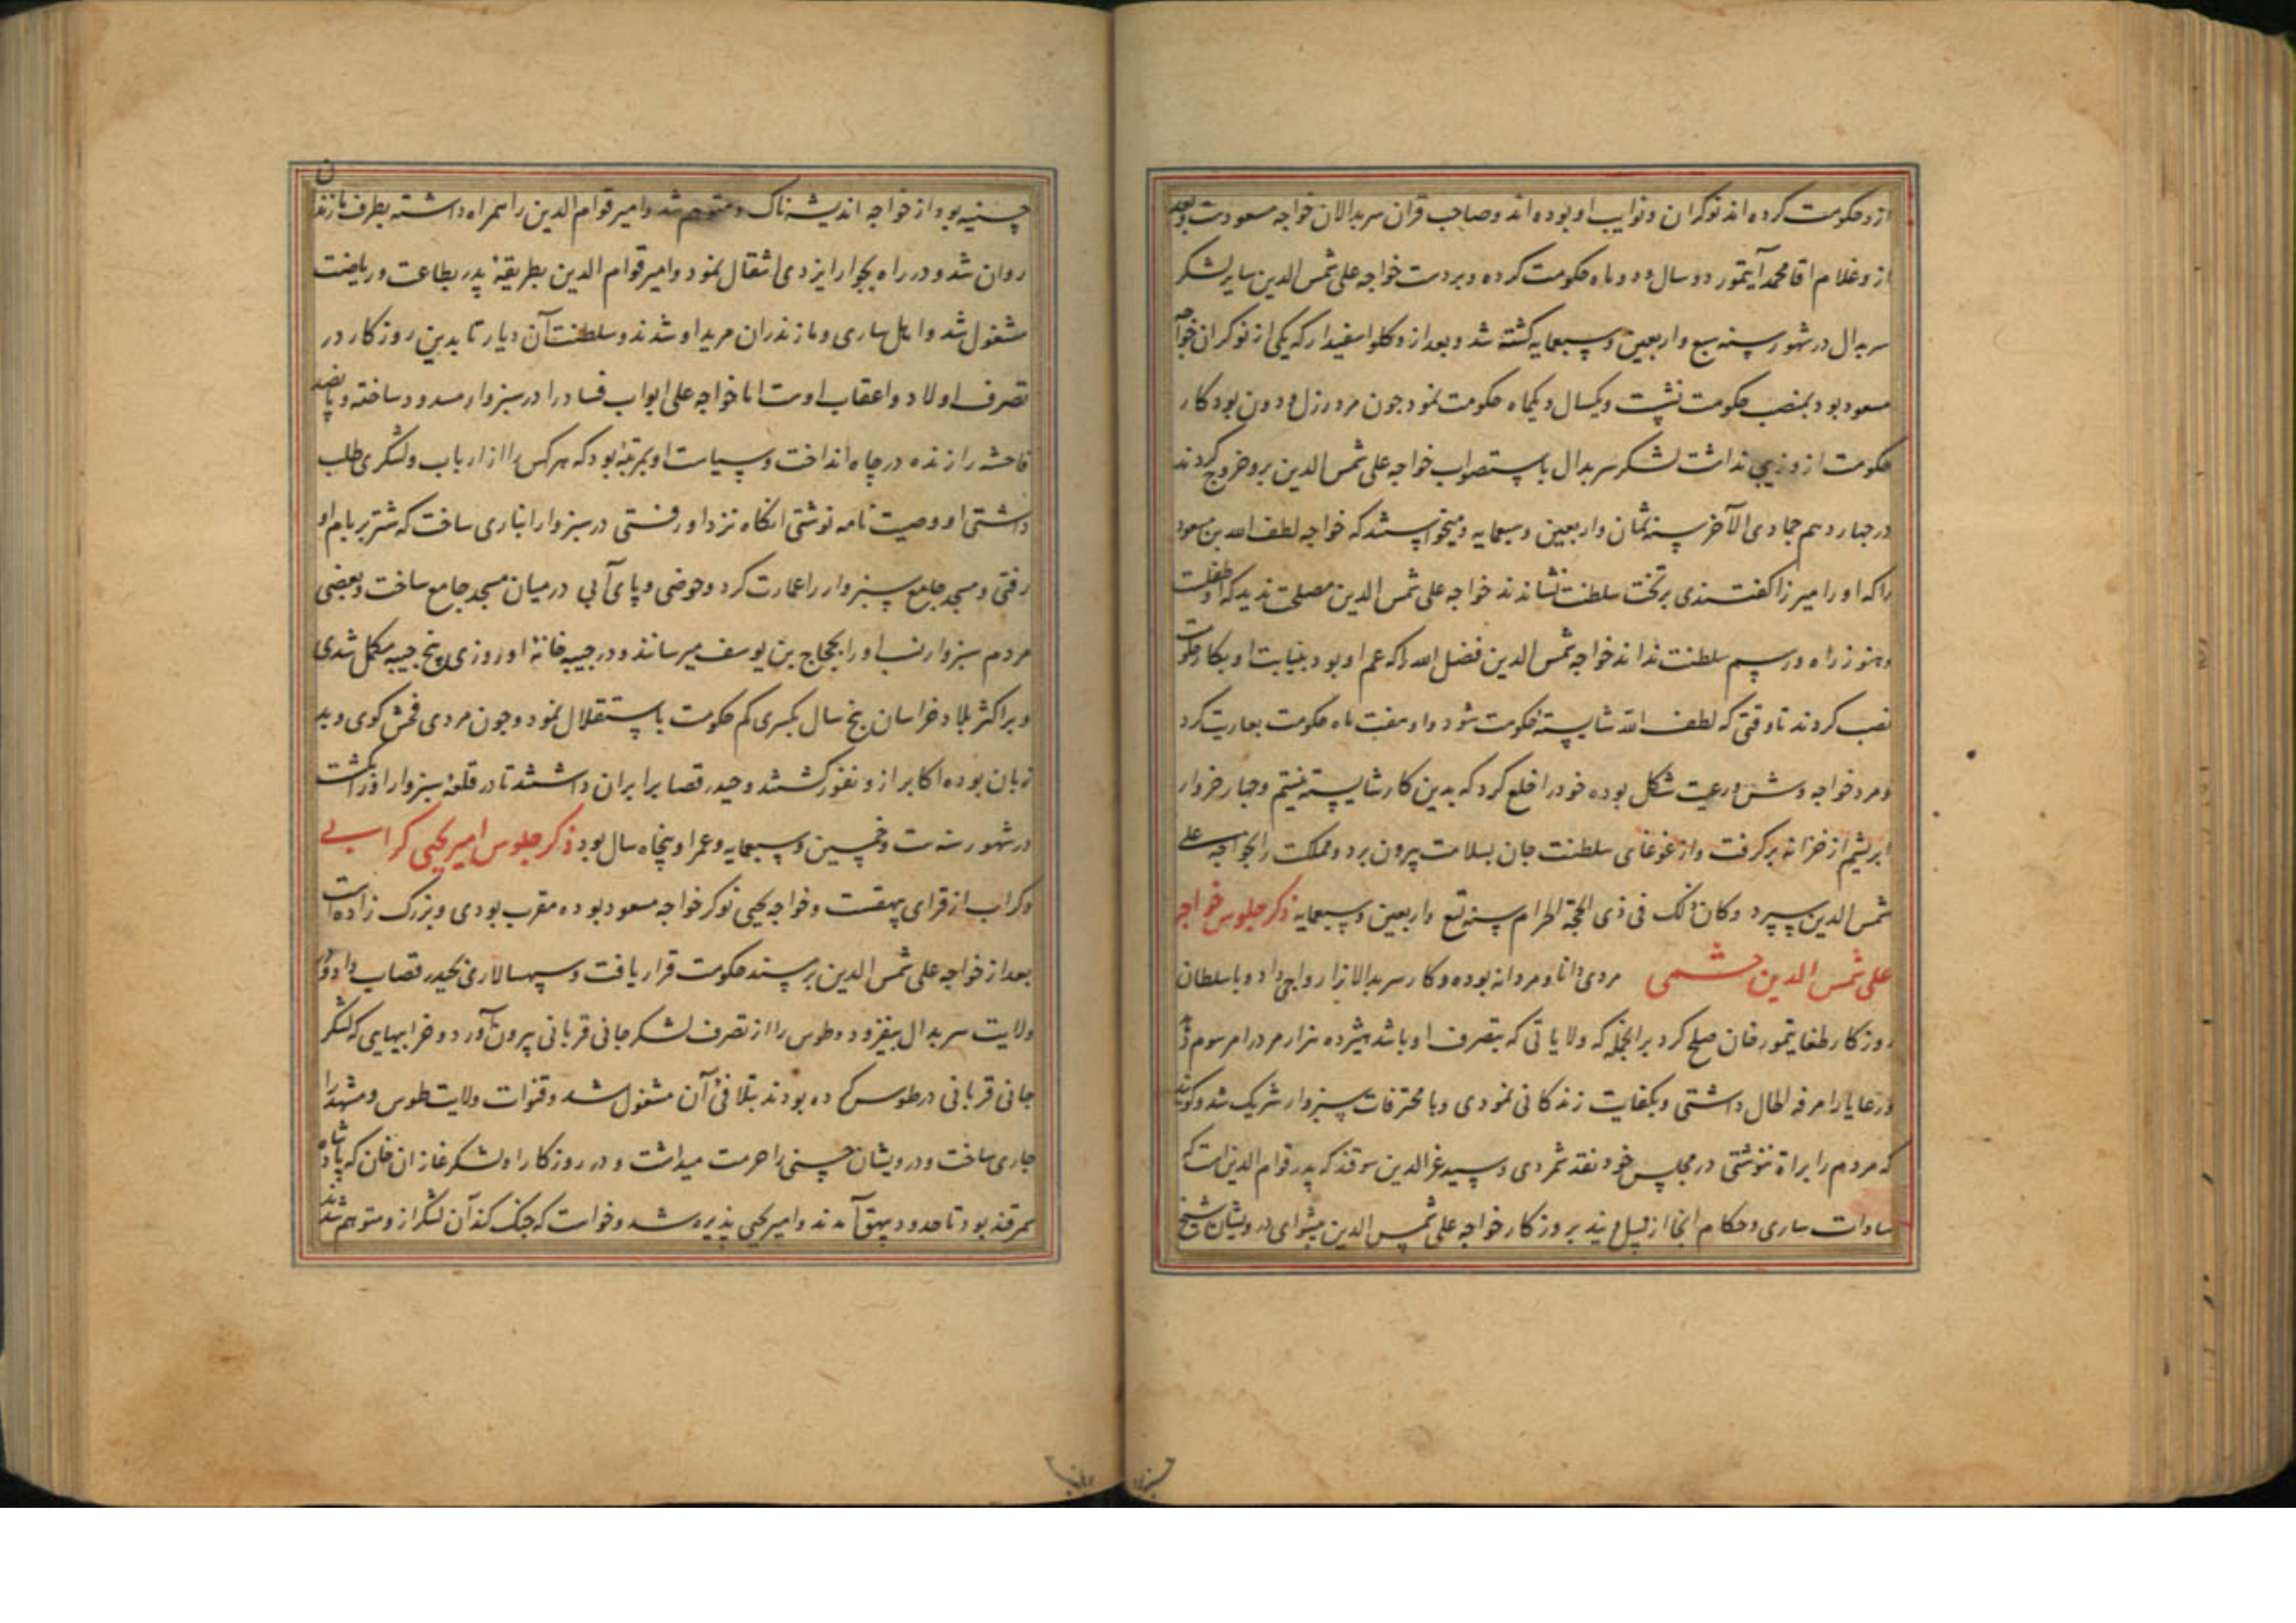 ازو حکومت کرده اند نوکران و نواب او بوده اند و صاحب قران سربدالان خواجه مسعودست و بعد
ازو غلام اقا محمد آیتمور دو سال و دو ماه حکومت کرده و بردست خواجه علی شمس الدین سایر لشکر
سربدال در شهور سنه سبع و اربعین و سبعمایه کشته شد و بعد ازو کلو اسفیدار که یکی از نوکران خواجه
مسعود بود بمنصب حکومت نشست و یکسال و یکماه حکومت نمود جون مرد رزل و دون بود کار
حکومت ازو زیبی نداشت لشکر سربدال باستصواب خواجه علی شمس الدین برو خروج کردند
در جهاردهم جمادی الآخر سنه ثمان و اربعین و سبعمایه و میخواستند که خواجه لطف الله بن مسعود
را که او را میرزا کفتندی بر تخت سلطنت نشانند خواجه علی شمس الدین مصلحت ندید که او طفلست
و هنوز راه و رسم سلطنت نداند خواجه شمس الدین فضل الله را که عم او بود بنیابت او بکار حکومت
نصب کردند تا وقتی که لطف الله شایسته حکومت شود و او هفت ماه حکومت بعاریت کرد
و مرد خواجه وش و رعیت شکل بوده خود را خلع کرد که بدین کار شایسته نیستم و جهار خروار
ابریشم از خزانه برکرفت و از غوغای سلطنت جان بسلامت بیرون برد و مملکت را بخواجه علی
شمس الدین سپرد و کان ذلک فی ذی الحجة الحرام سنه تسع و اربعین و سبعمایه ذکر جلوس خواجه
علی شمس الدین جشمی مردی دانا و مردانه بوده و کار سربدالانرا رواجی داد و با سلطان
روزکار طغایتمور خان صلح کرد برانجمله که ولایاتی که بتصرف او باشد هیژده هزار مرد را مرسوم
و رعایا را مرفه الحال داشتی و بکفایت زندکانی نمودی و با محترفات سبزوار شریک شد و کویند
که مردم را براة ننوشتی در مجلس خود نقد شمردی و سید عز الدین سوقندی که پدر قوام الدین است که
سادات ساری و حکام انجا از نسل ویند بروزکار خواجه علی شمس الدین پیشوای درویشان شیخ
حسنیه بود از خواجه اندیشه ناک و متوهم شد و امیر قوام الدین را همراه داشته بطرف مازندران
روان شد و در راه بجوار ایزدی انتقال نمود و امیر قوام الدین بطریقه پدر بطاعت و ریاضت
مشغول شد و اهل ساری و مازندران مرید او شدند و سلطنت آن دیار تا بدین روزکار در
تصرف اولاد و اعقاب اوست اما خواجه علی ابواب فساد را در سبزوار مسدود ساخته و پانصد
فاحشه را زنده در جاه انداخت و سیاست او بمرتبه بود که هر کس را از ارباب و لشکری طلب
داشتی او وصیت نامه نوشتی انکاه نزد او رفتی در سبزوار انباری ساخت که شتر بر بام او
رفتی و مسجد جامع سبزوار را عمارت کرد و حوضی و پای آبی در میان مسجد جامع ساخت و بعضی
مردم سبزوار نسب او را بحجاج بن یوسف میرسانند و در جیبه خانه او روزی پنج جیبه مکمل شدی
و بر اکثر بلاد خراسان پنج سال بکسری کم حکومت باستقلال نمود و جون مردی فحش کوی و بد
زبان بوده اکابر ازو نفور کشتند و حیدر قصاب را بران داشتند تا در قلعه سبزوار او را بکشت
در شهور سنه ست و خمسین و سبعمایه و عمر او پنجاه سال بود ذکر جلوس امیر یحیی کرابی
و کراب از قرای بیهقست و خواجه یحیی نوکر خواجه مسعود بوده مقرب بودی و بزرک زاده است
بعد از خواجه علی شمس الدین بر مسند حکومت قرار یافت و سپهسالاری بحیدر قصاب داد و در
ولایت سربدال بیفزود و طوس را از تصرف لشکر جانی قربانی بیرون آورد و خرابیهایی که لشکر
جانی قربانی در طوس کرده بودند بتلافی آن مشغول شد و قنوات ولایت طوس و مشهد را
جاری ساخت و درویشان حسنی را حرمت میداشت و در روزکار او لشکر غازان خان که پادشاه
سمرقند بود تا حدود بیهق آمدند و امیر یحیی پذیره شد و خواست که جنک کند آن لشکر ازو متوهم شدند